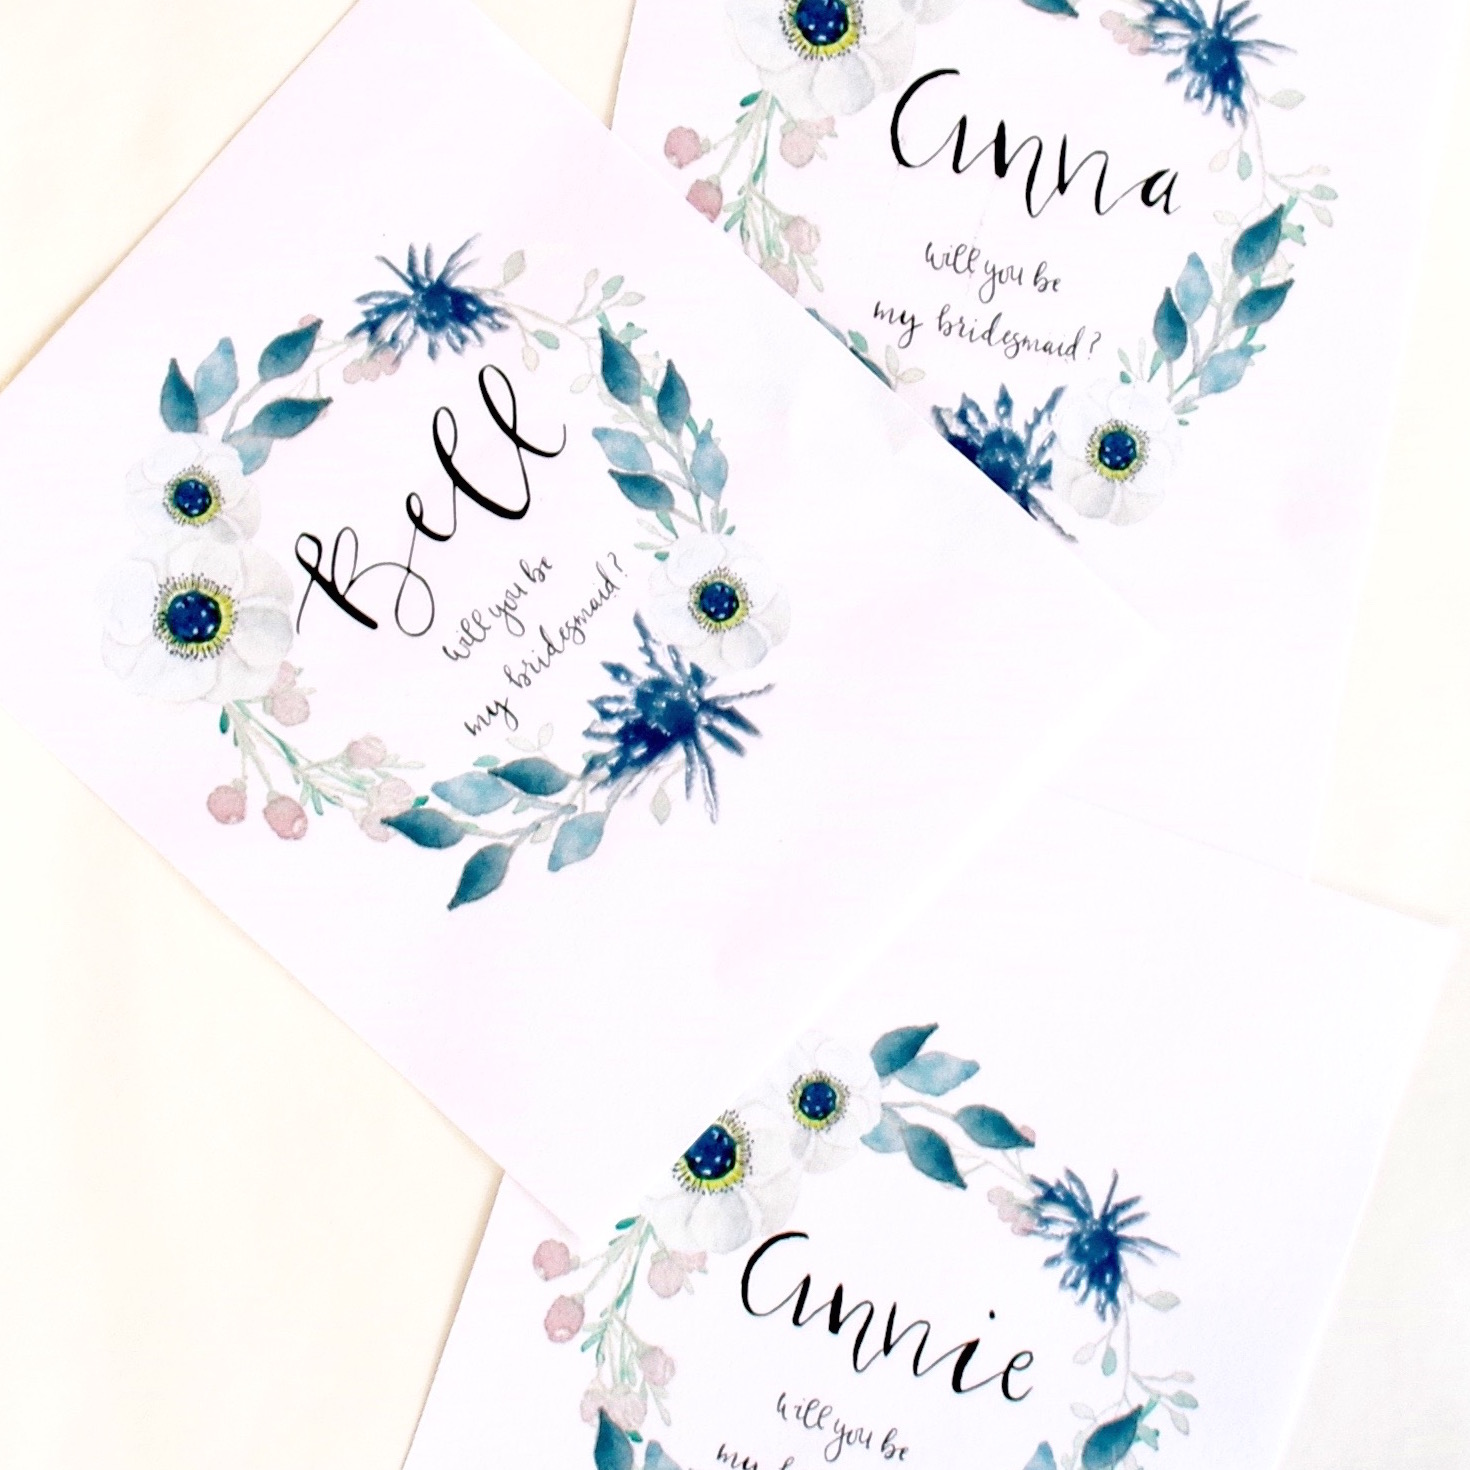 Anna
will you be
my bridesmaid?
Bell
will you be
my bridesmaid?
Annie
will you be
my